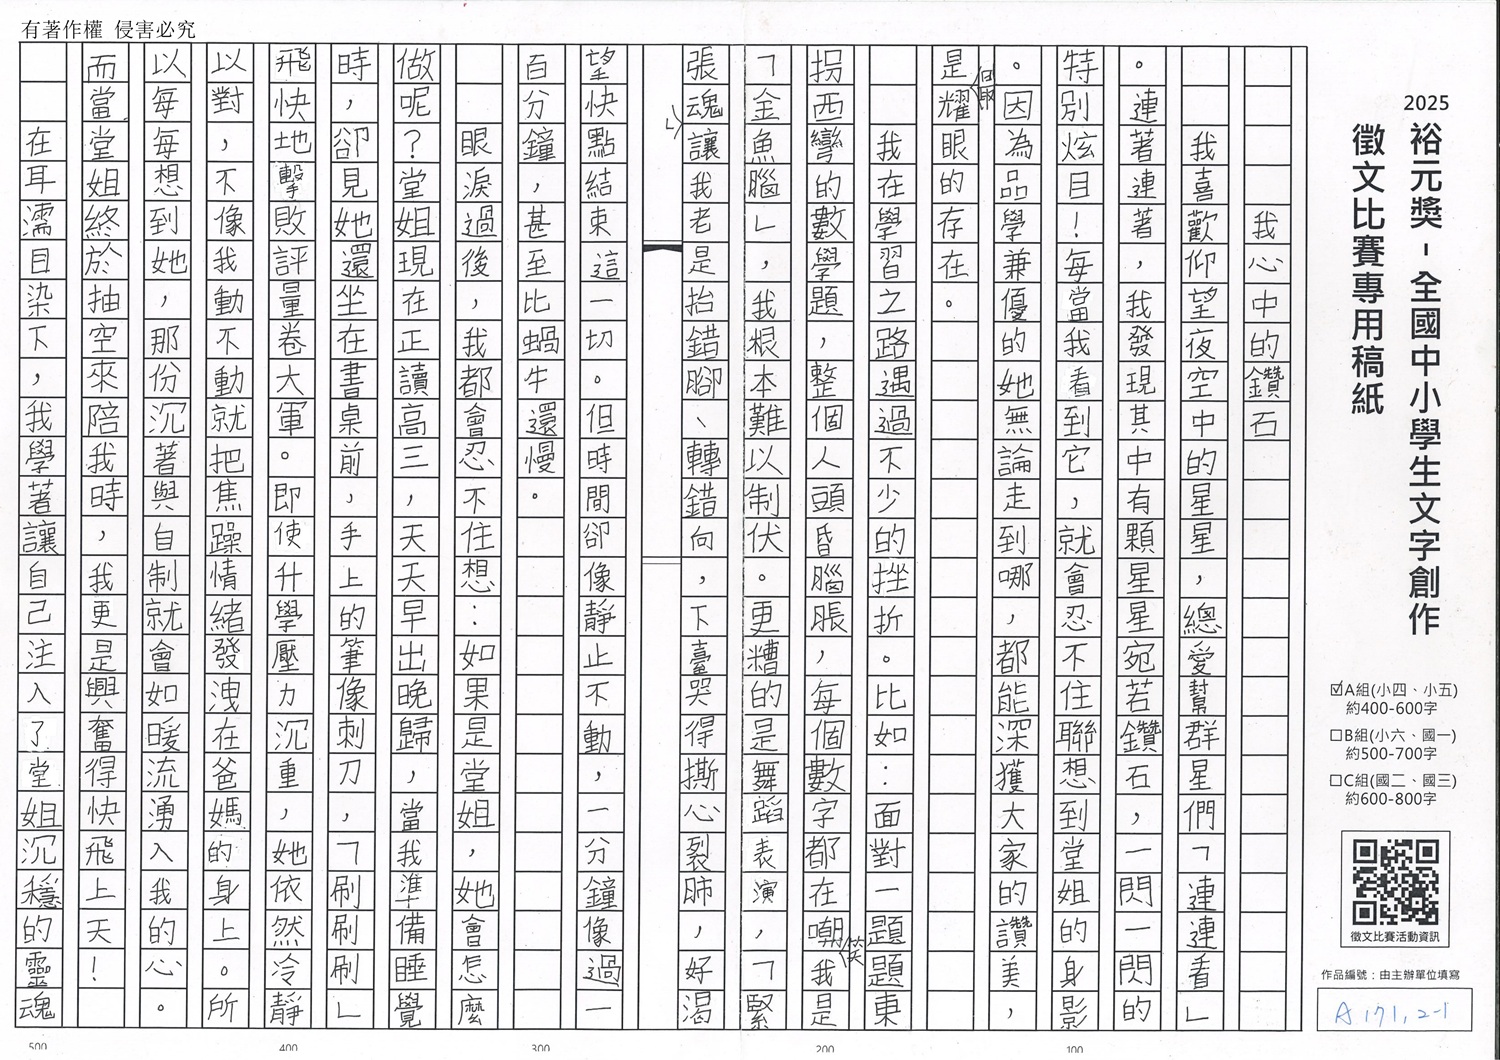 有著作權 侵害必究
2025
裕元獎-全國中小學生文字創作
徵文比賽專用稿紙
☑A組(小四、小五)
約400-600字
□B組(小六、國一)
約500-700字
□C組(國二、國三)
約600-800字
徵文比賽活動資訊
作品編號：由主辦單位填寫
A171,2-1
我心中的鑽石
我喜歡仰望夜空中的星星，總愛幫群星們「連連看」
。連著連著，我發現其中有顆星星宛若鑽石，一閃一閃的
特別炫目！每當我看到它，就會忍不住聯想到堂姐的身影
。因為品學兼優的她無論走到哪，都能深獲大家的讚美，
是最耀眼的存在。
我在學習之路遇過不少的挫折。比如：面對一題題東
拐西彎的數學題，整個人頭昏腦脹，每個數字都在嘲笑我是
「金魚腦」，我根本難以制伏。更糟的是舞蹈表演，「緊
張魂」讓我老是抬錯腳、轉錯向，下臺哭得撕心裂肺，好渴
望快點結束這一切。但時間卻像靜止不動，一分鐘像過一
百分鐘，甚至比蝸牛還慢。
眼淚過後，我都會忍不住想：如果是堂姐，她會怎麼
做呢？堂姐現在正讀高三，天天早出晚歸，當我準備睡覺
時，卻見她還坐在書桌前，手上的筆像刺刀，「刷刷刷」
飛快地擊敗評量卷大軍。即使升學壓力沉重，她依然冷靜
以對，不像我動不動就把焦躁情緒發洩在爸媽的身上。所
以每每想到她，那份沉著與自制就會如暖流湧入我的心。
而當堂姐終於抽空來陪我時，我更是興奮得快飛上天！
在耳濡目染下，我學著讓自己注入了堂姐沉穩的靈魂
100
200
300
400
500